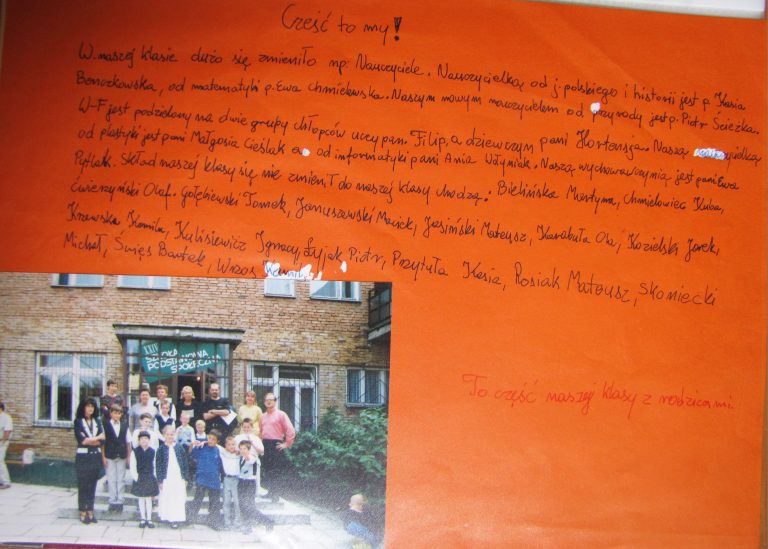 Cześć to my!
W naszej klasie dużo się zmieniło np: Nauczyciele. Nauczycielką od j. polskiego i historii jest p. Kasia
Benczkowska, od matematyki p. Ewa Chmielewska. Naszym nowym nauczycielem od przyrody jest p. Piotr Ścieżka.
W-F jest podzielony na dwie grupy chłopców uczy pan Filip, a dziewczyn pani Hortensja. Naszą nauczycielką
od plastyki jest pani Małgosia Cieślak a od informatyki pani Ania Woźniak. Naszą wychowawczynią jest pani Ewa
Pytlak. Skład naszej klasy się nie zmienił do naszej klasy chodzą: Bielińska Martyna, Chmielowiec Kuba,
Ćwierzyński Olaf. Gołębiewski Tomek, Januszewski Maciek, Jasiński Mateusz, Karabuła Ola, Kozielski Jarek,
Krzewska Kamila, Kulisiewicz Ignacy, Łyjak Piotr, Przytuła Kasia, Rosiak Mateusz, Skoniecki
Michał, Święs Bartek, Wrzos Kamil.
XXIV
SZKOŁA
PODSTAWOWA
SPOŁECZNA
To część naszej klasy z rodzicami.